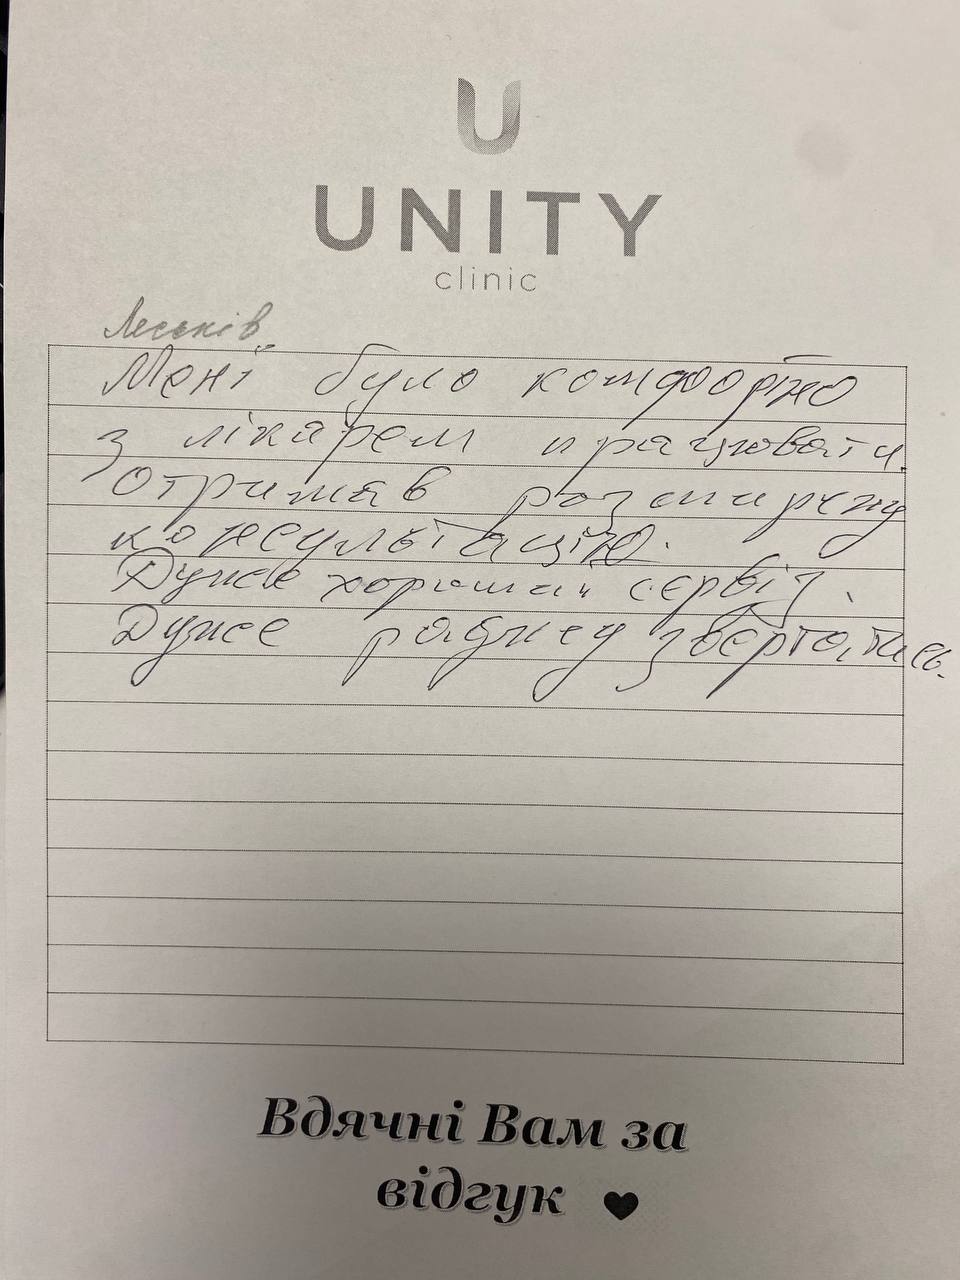 U
UNITY
clinic
Леськів
Мені було комфортно
з лікарем працювати.
Отримав розширену
консультацію.
Дуже хороший сервіз.
Дуже раджу звертатись.
Вдячні Вам за
відгук ♥